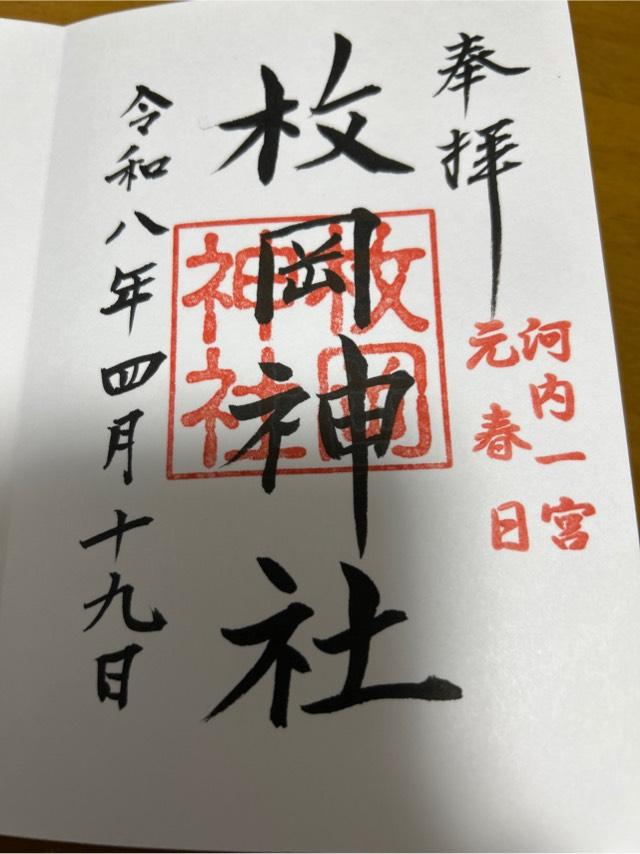 奉拝
河内一宮
元春日
枚岡神社
枚岡
神社
令和八年四月十九日